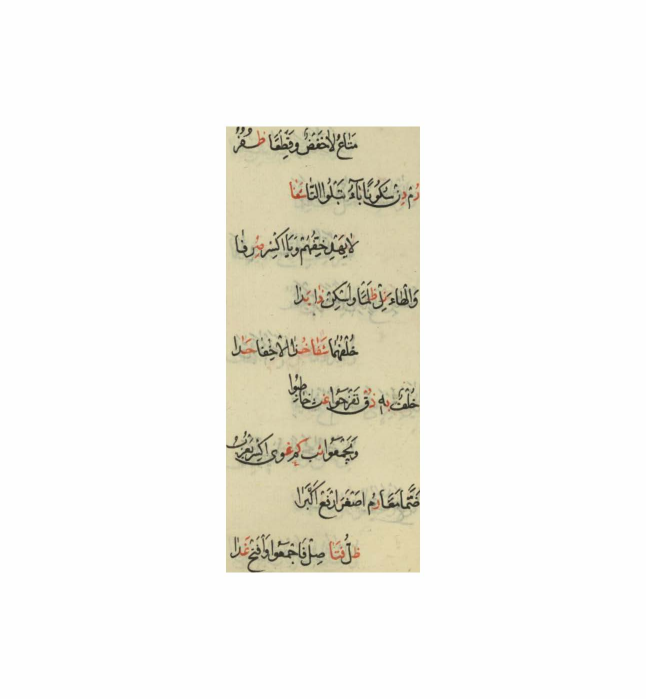 مَتَاعُ لَا خَفْضُ وَقِطْعًا ظفر
رُم دِن سَكُونًا بَاءُ تَبْلُوا التَّا شفا
لَا يَهْدِ خِفُّهُمْ وَيَا اكْسِرْ صرفا
وَالْهَاءُ نل ظُلْمًا وَلَكِنْ ذا بدا
خُلْفُهُمَا شَفَا خُذِ الْإِخْفَا حدا
خُلْفُ بِهِ ذُق تَفْرَحُوا غث خَاطِبُوا
وَيَجْمَعُوا ثب كم غوى اكْسِرْ يَعْزُبُ
ضَمًّا مَعًا رم اصْغَرَ ارْفَعْ أَكْبَرَا
ظل فتا صِلْ فَاجْمَعُوا وَافْتَحْ غدا